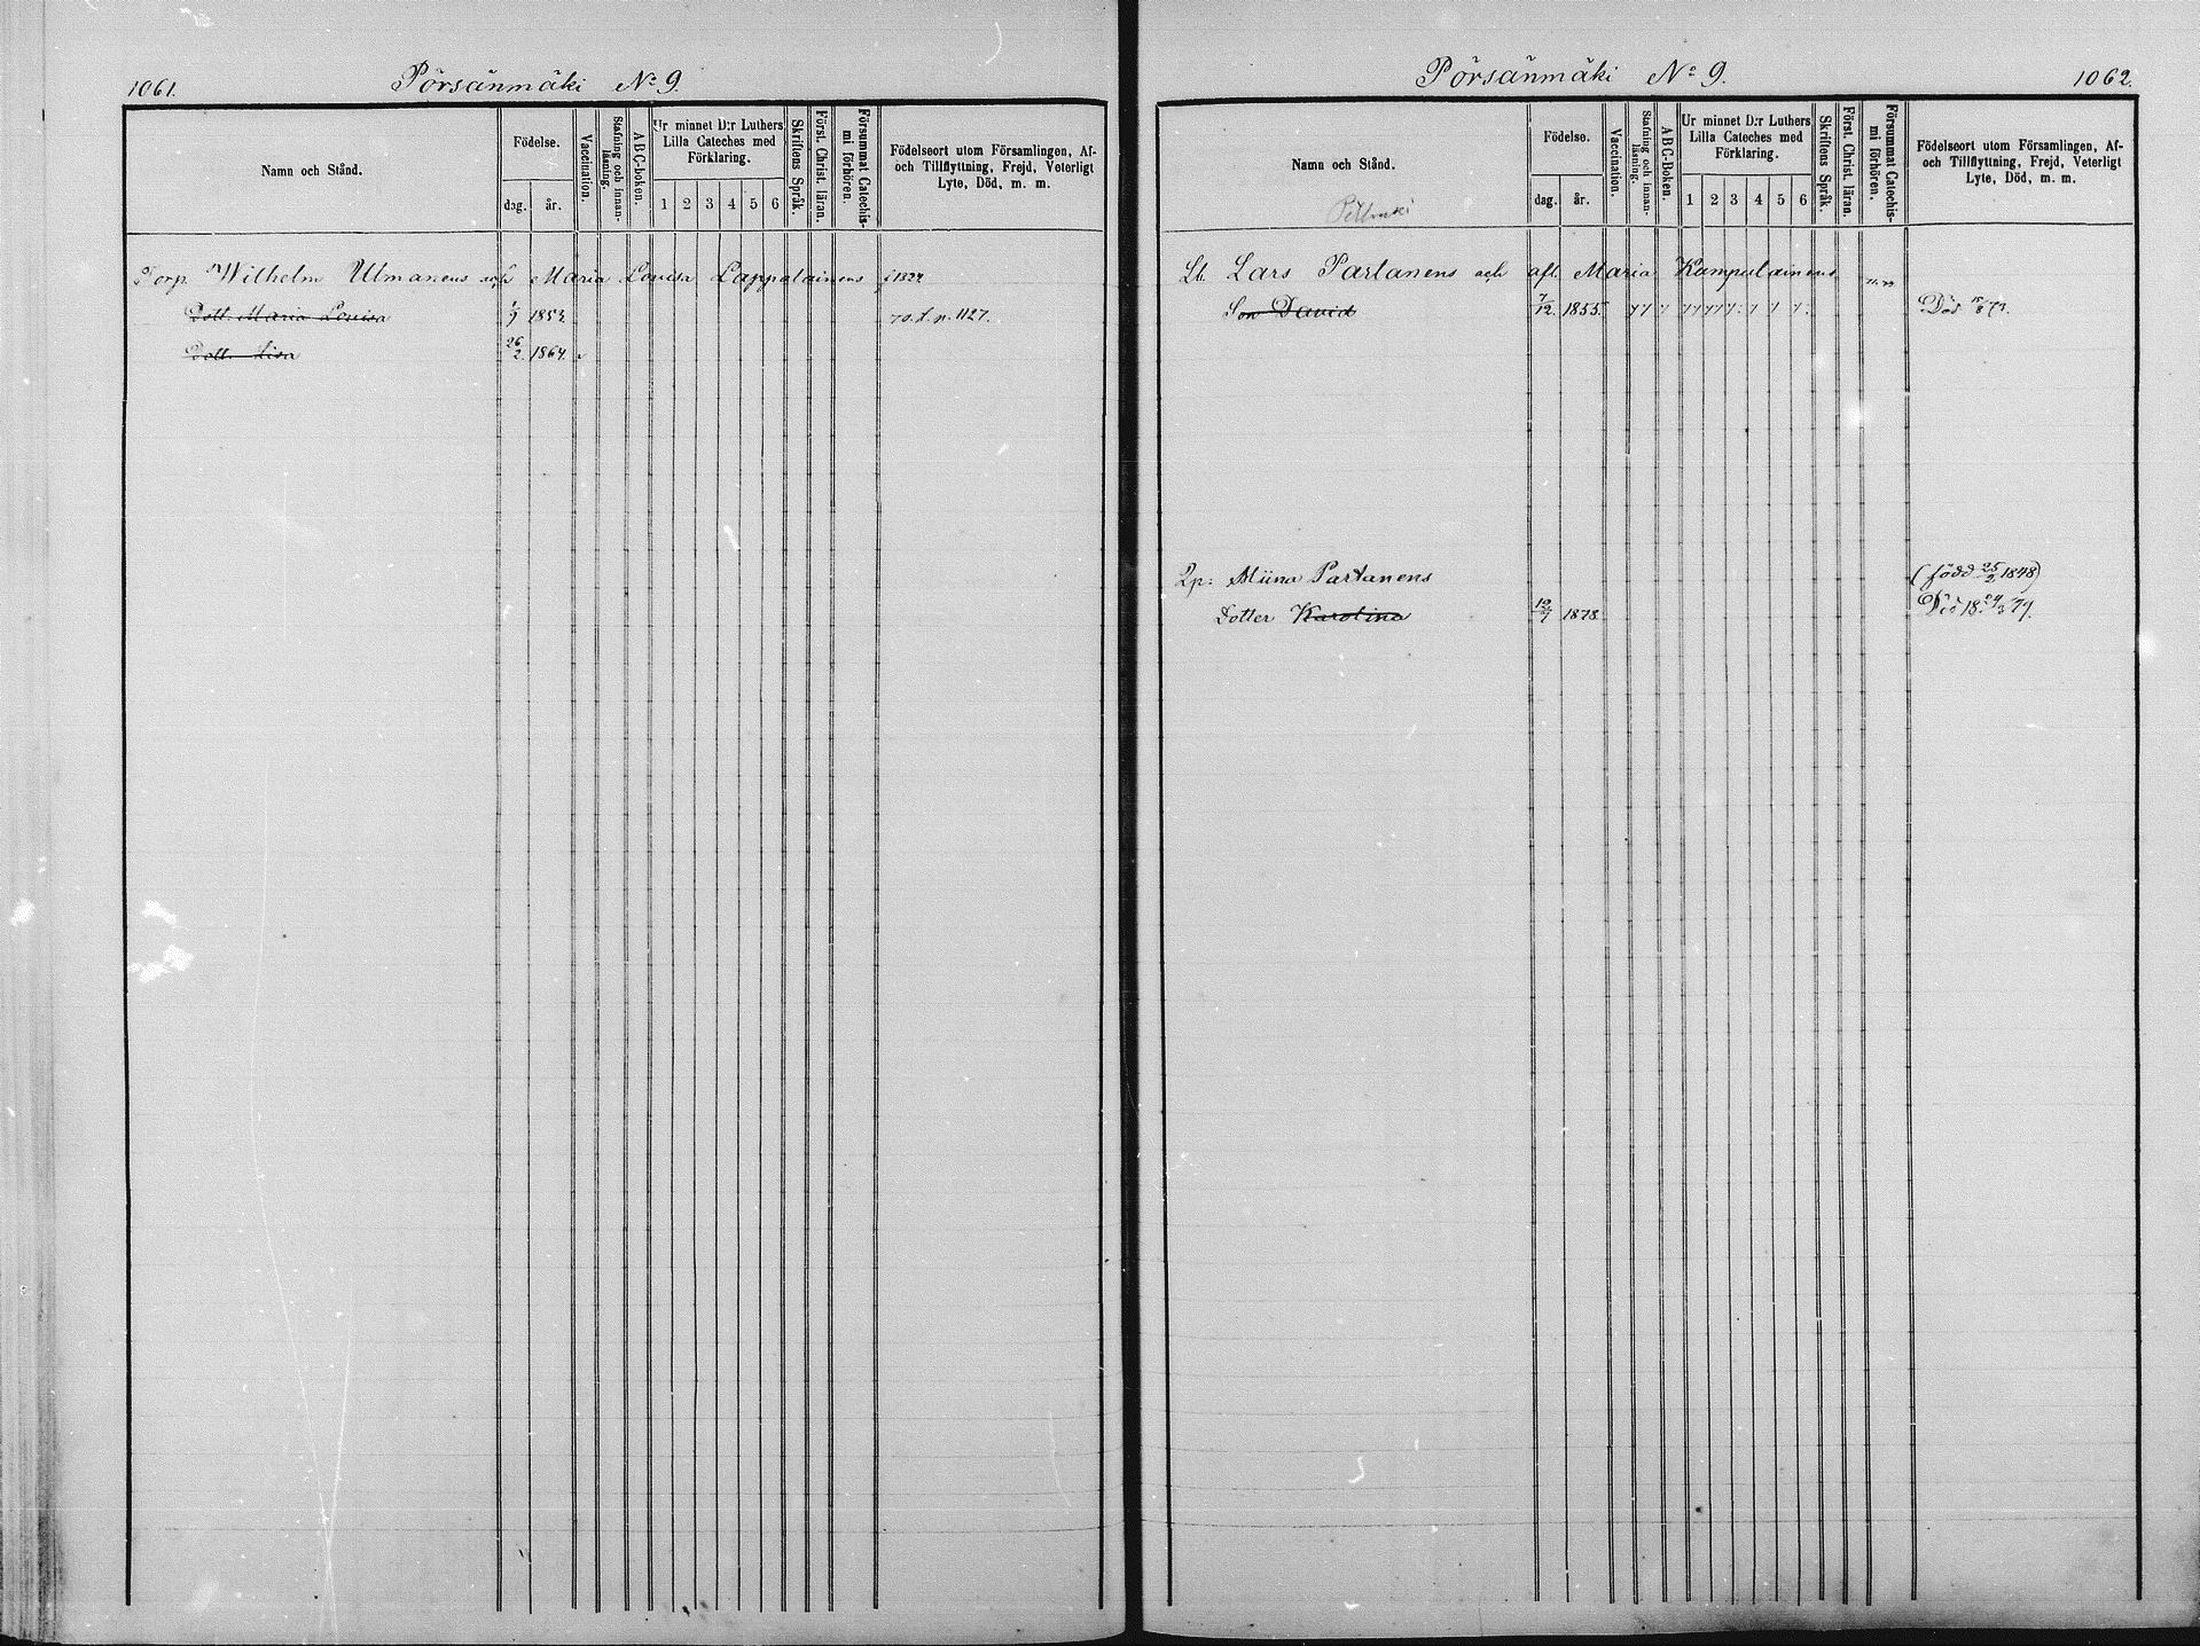 1061.
Pörsänmäki No 9.
Namn och Stånd.
Födelse.
dag.
år.
Vaccination.
Stafning och innanläsning.
ABC-boken.
Ur minnet D:r Luthers Lilla Cateches med Förklaring.
1 2 3 4 5 6
Skriftens Språk.
Först. Christ. läran.
Försummat Catechismi förhören.
Födelseort utom Församlingen, Af- och Tillflyttning, Frejd, Veterligt Lyte, Död, m. m.
Torp. Wilhelm Ulmanens och Maria Lovisa Lappalainens
Dott. Maria Lovisa 1853. p. 1127.
Dott. Lisa 26/2. 1864.
Pörsänmäki No 9.
1062.
Namn och Stånd.
Födelse.
dag.
år.
Vaccination.
Stafning och innanläsning.
ABC-Boken.
Ur minnet D:r Luthers Lilla Cateches med Förklaring.
1 2 3 4 5 6
Skriftens Språk.
Först. Christ. läran.
Försummat Catechismi förhören.
Födelseort utom Församlingen, Af- och Tillflyttning, Frejd, Veterligt Lyte, Död, m. m.
Lars Partanens och afl. Maria Kumpulainens
Son David 7/12. 1855. Död
Qp: Miina Partanens (född 25/2 1848)
Dotter Karolina 1878.